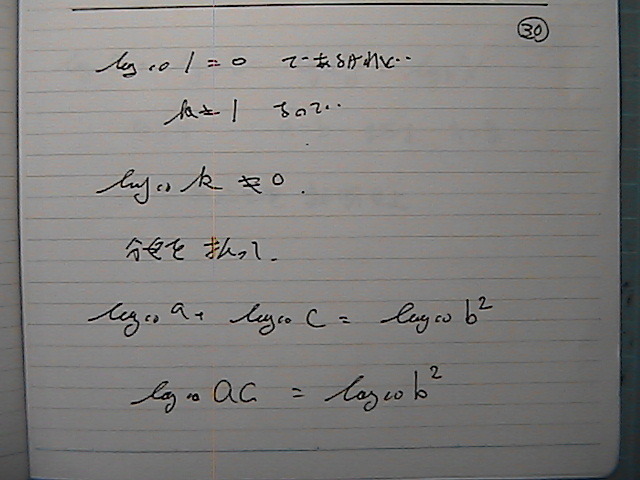 ㉚
log₁₀ 1 = 0 であるけれど…
k ≠ 1 なので…
log₁₀ k ≠ 0.
分母を払って.
log₁₀ a + log₁₀ c = log₁₀ b²
log₁₀ ac = log₁₀ b²